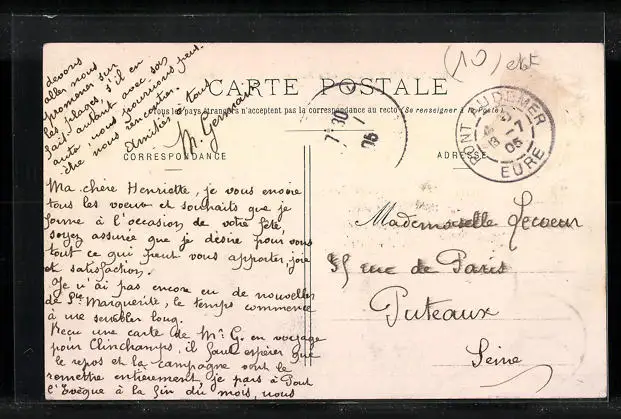 devons
aller nous
promener sur
les plages, s'il en
fait autant avec son
auto, nous pourrions peut-
être nous rencontrer.
Amitiés à tous
M. Germain
(10)
CARTE POSTALE
Tous les pays étrangers n'acceptent pas la correspondance au recto (Se renseigner à la Poste)
7 30
1
05
PONT-AUDEMER
17
05
EURE
CORRESPONDANCE
ADRESSE
Ma chère Henriette, je vous envoie
tous les voeux et souhaits que je
forme à l'occasion de votre fête,
soyez assurée que je désire pour vous
tout ce qui peut vous apporter joie
et satisfaction.
Je n'ai pas encore eu de nouvelles
de Ste Marguerite, le temps commence
à me sembler long.
Recu une carte de Mr G. en voyage
pour Clinchamps, il faut espérer que
le repos et la campagne vont le
remettre entièrement, je pars à Pont
l'Evêque à la fin du mois, nous
Mademoiselle Lecoeur
35 rue de Paris
Puteaux
Seine